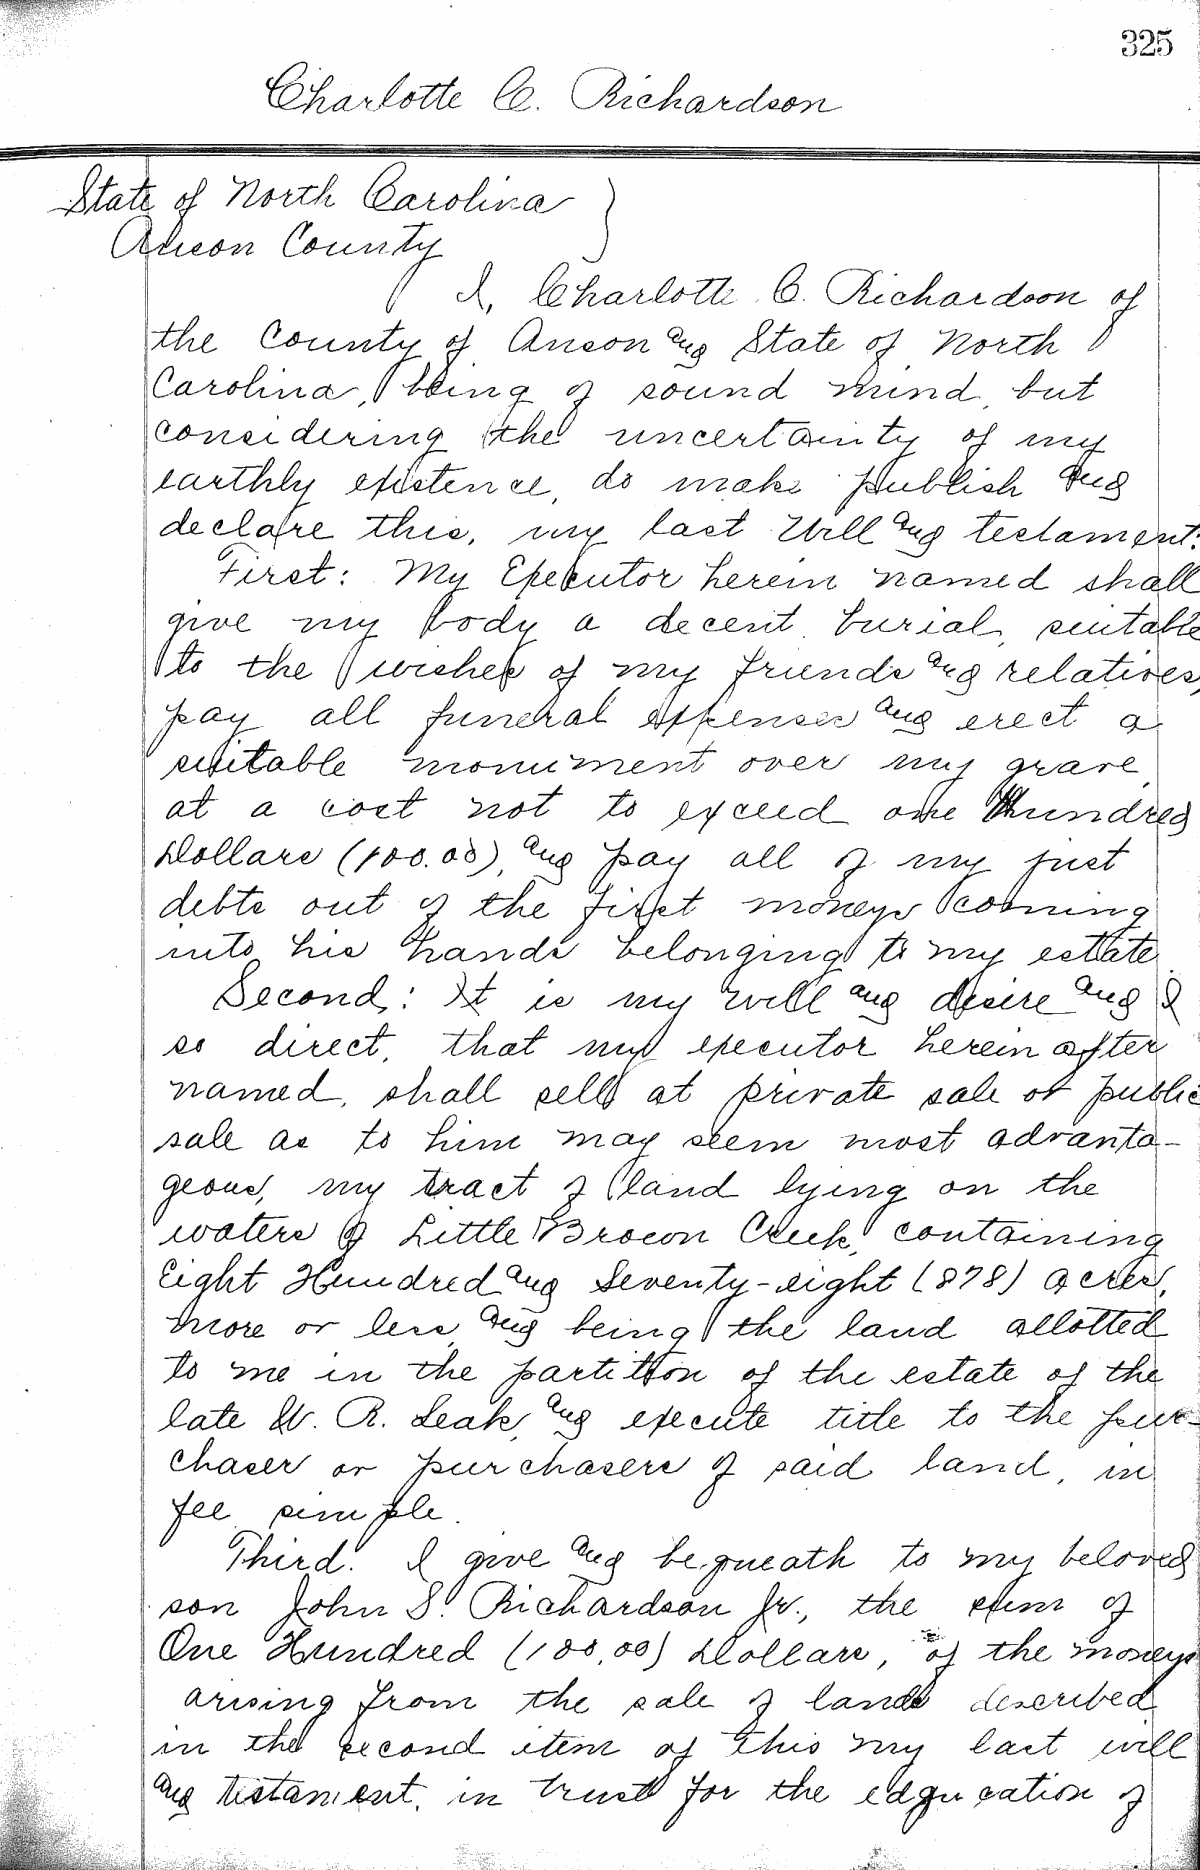 325
Charlotte C. Richardson
State of North Carolina
Anson County
I, Charlotte C. Richardson of
the County of Anson and State of North
Carolina, being of sound mind, but
considering the uncertainty of my
earthly existence, do make publish and
declare this, my last Will and testament:
First: My Executor herein named shall
give my body a decent burial, suitable
to the wishes of my friends and relatives,
pay all funeral expenses and erect a
suitable monument over my grave,
at a cost not to exceed one Hundred
Dollars (100.00), and pay all of my just
debts out of the first moneys coming
into his hands belonging to my estate.
Second: It is my will and desire and I
so direct, that my executor herein after
named, shall sell at private sale or public
sale as to him may seem most advanta-
geous, my tract of land lying on the
waters of Little Brown Creek, containing
Eight Hundred and Seventy-eight (878) acres,
more or less, and being the land allotted
to me in the partition of the estate of the
late W. R. Leak, and execute title to the pur-
chaser or purchasers of said land, in
fee simple.
Third: I give and bequeath to my beloved
son John S. Richardson Jr., the sum of
One Hundred (100.00) Dollars, of the moneys
arising from the sale of lands described
in the second item of this my last will
and testament, in trust for the education of